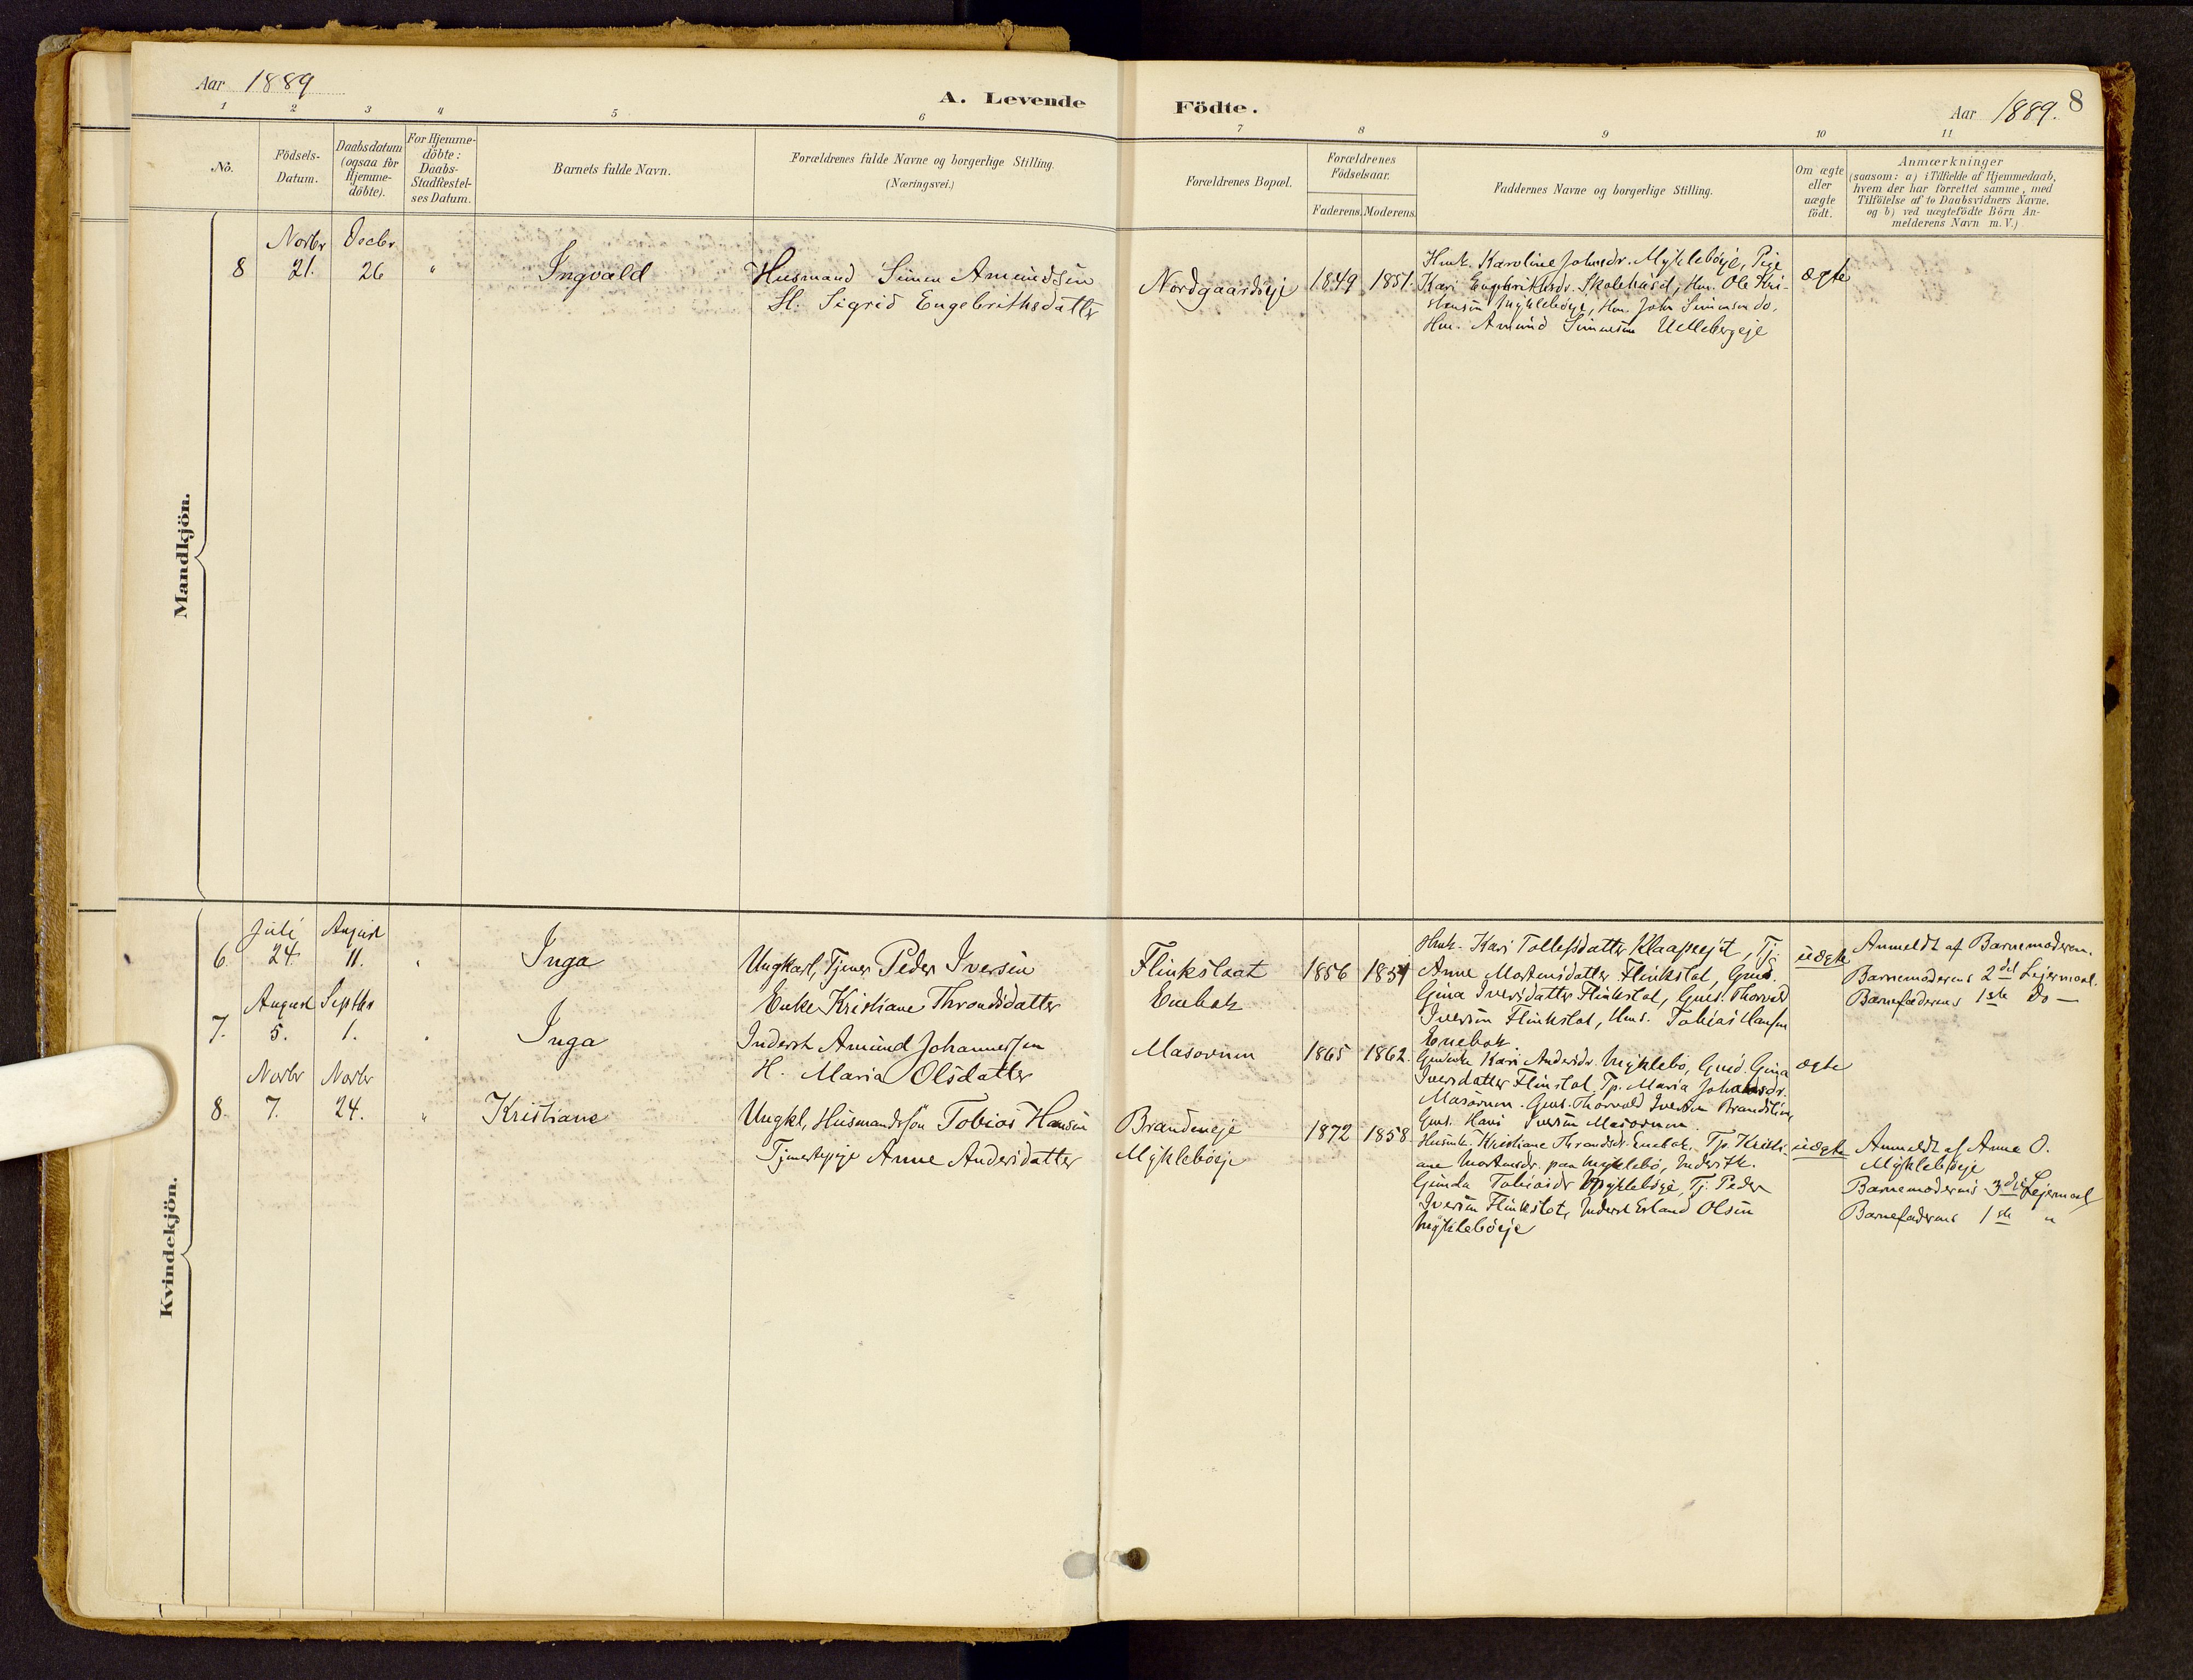 Aar 1889
A. Levende Födte.
Aar 1889. 8
1 2 3 4 5 6 7 8 9 10 11
No.
Födsels-
Datum.
Daabsdatum
(ogsaa for
Hjemme-
döbte).
For Hjemme-
döbte:
Daabs-
Stadfæstel-
ses Datum.
Barnets fulde Navn.
Forældrenes fulde Navne og borgerlige Stilling.
(Næringsvei.)
Forældrenes Bopæl.
Forældrenes
Födselsaar.
Faderens. Moderens.
Faddernes Navne og borgerlige Stilling.
Om ægte
eller
uægte
födt.
Anmærkninger
(saasom: a) i Tilfælde af Hjemmedaab,
hvem der har forrettet samme, med
Tilföielse af to Daabsvidners Navne.
og b) ved uægtefödte Börn An-
melderens Navn m. V.)
Mandkjön.
Novbr Decbr
8 21. 26 " Ingvald
Husmand Simen Amundsen
H. Sigrid Engebrithsdatter
Nordgaardseje 1849 1851.
Hmk. Karoline Johnsdr. Mykleböeje, Pige
Kari Engebrithsdr. Skolehüset, Hm. Ole Kri-
stensen Mykleböeje, Hm. John Simensen do.
Hm. Amund Simensen Ullebergeje
ægte
Kvindekjön.
Juli August
6. 24. 11. " Inga
Ungkarl, Tjener Peder Iversen
Enke Kristiane Throndsdatter
Flinkstaat
Enebak
1856 1854
Hmk. Kari Tollefsdatter Klaapeejet, Tj.
Anne Mortensdatter Flinkstot, Gmd.
Gina Iversdatter Flinkstot, Gms. Thorvald
Iversen Flinkstot, Hms. Tobias Hansen
Enebak
uægte
Anmeldt af Barnemoderen.
Barnemoderens 2det Lejermaal.
Barnefaderens 1ste do —
August Septbr
7. 5. 1. " Inga
Inderst Amund Johannessen
H. Maria Olsdatter
Masovnen 1865 1862.
Kari Andersdr. Myklebö, Gmd. Gina
Iversdatter Flinstot, Tp. Maria Johannsdr.
Masovnen. Gms. Thorvald Iversen
Gms. Hans Iversen Masovnen.
ægte
Novbr Novbr
8. 7. 24. " Kristiane
Ungkl, Husmandssön Tobias Hansen
Tjenestepige Anne Andersdatter
Brandeneje
Mykleböeje
1872 1858
Husmk. Kristiane Throndsdr. Enebak. Tp. Kristi-
ane Mortensdr. paa Myklebö, Inderstk.
Gunda Tobiasdr Mykleböeje, Tj. Peder
Iversen Flinkstot, Inderst Erland Olsen
Mykleböeje
uægte
Anmeldt af Anne O.
Mykleböeje
Barnemoderens 3die Lejermaal
Barnefaderens 1ste "